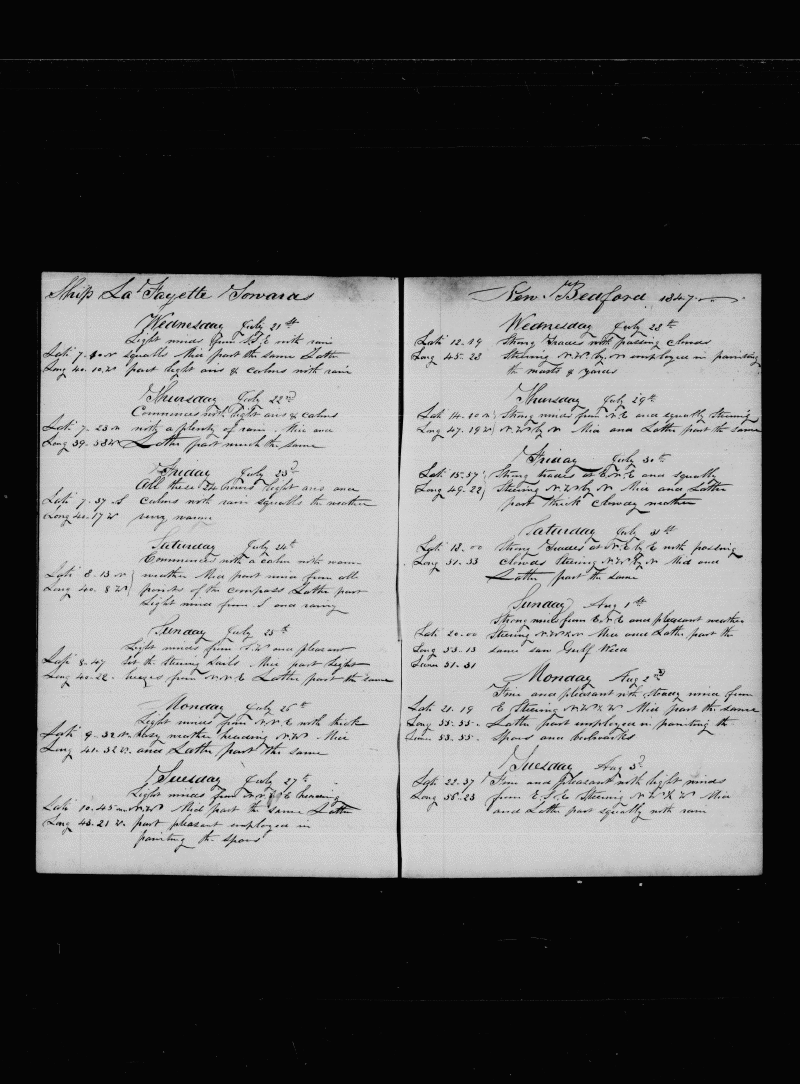 Ship La Fayette Towards
Wednesday July 21st
Light winds from S.S.E with rain
Lati 7.50 N squalls Mid part the same Latter
Long 40.10 W part light airs & calms with rain
Thursday July 22d
Commences with light airs & calms
Lati 7.23 N with a plenty of rain Mid and
Long 39.58 W Latter part much the same
Friday July 23d
All these 24 hours light airs and
Lati 7.37 calms with rain squalls the weather
Long 40.17 W very warm
Saturday July 24th
Commences with a calm with warm
Lati 8.13 N weather Mid part wind from all
Long 40.8 W points of the compass Latter part
Light wind from S and rainy
Sunday July 25th
Light winds from S.W and pleasant
Lati 8.47 set the steering sails Mid part light
Long 40.22 breezes from N.N.E Latter part the same
Monday July 26th
Light winds from N.N.E with thick
Lati 9.32 N hazy weather heading N.W Mid
Long 41.32 W and Latter part the same
Tuesday July 27th
Light winds from N.N.E heading
Lati 10.45 N.W Mid part the same Latter
Long 43.21 W part pleasant employed in
painting the spars
New Bedford 1847
Wednesday July 28th
Lati 12.19 Strong trades with passing clouds
Long 45.23 Steering N.W by N employed in painting
the masts & yards
Thursday July 29th
Lati 14.10 N Strong winds from N.E and squally steering
Long 47.19 W N.W by N Mid and Latter part the same
Friday July 30th
Lati 15.57 Strong trades at E.N.E and squally
Long 49.22 Steering N.W by N Mid and Latter
part thick cloudy weather
Saturday July 31st
Lati 18.00 Strong Trades at N.E by E with passing
Long 51.33 clouds steering N.W by N Mid and
Latter part the same
Sunday Aug 1st
Strong winds from E.N.E and pleasant weather
Lati 20.00 Steering Mid and Latter part the
Long 53.13 same saw Gulf Weed
51.31
Monday Aug 2d
Fine and pleasant with steady wind from
Lati 21.19 E Steering Mid part the same
Long 55.55 Latter part employed in painting the
53.55 spars and bulwarks
Tuesday Aug 3d
Lati 22.37 Fine and pleasant with light winds
Long 58.23 from E.S.E Steering Mid
and Latter part squally with rain